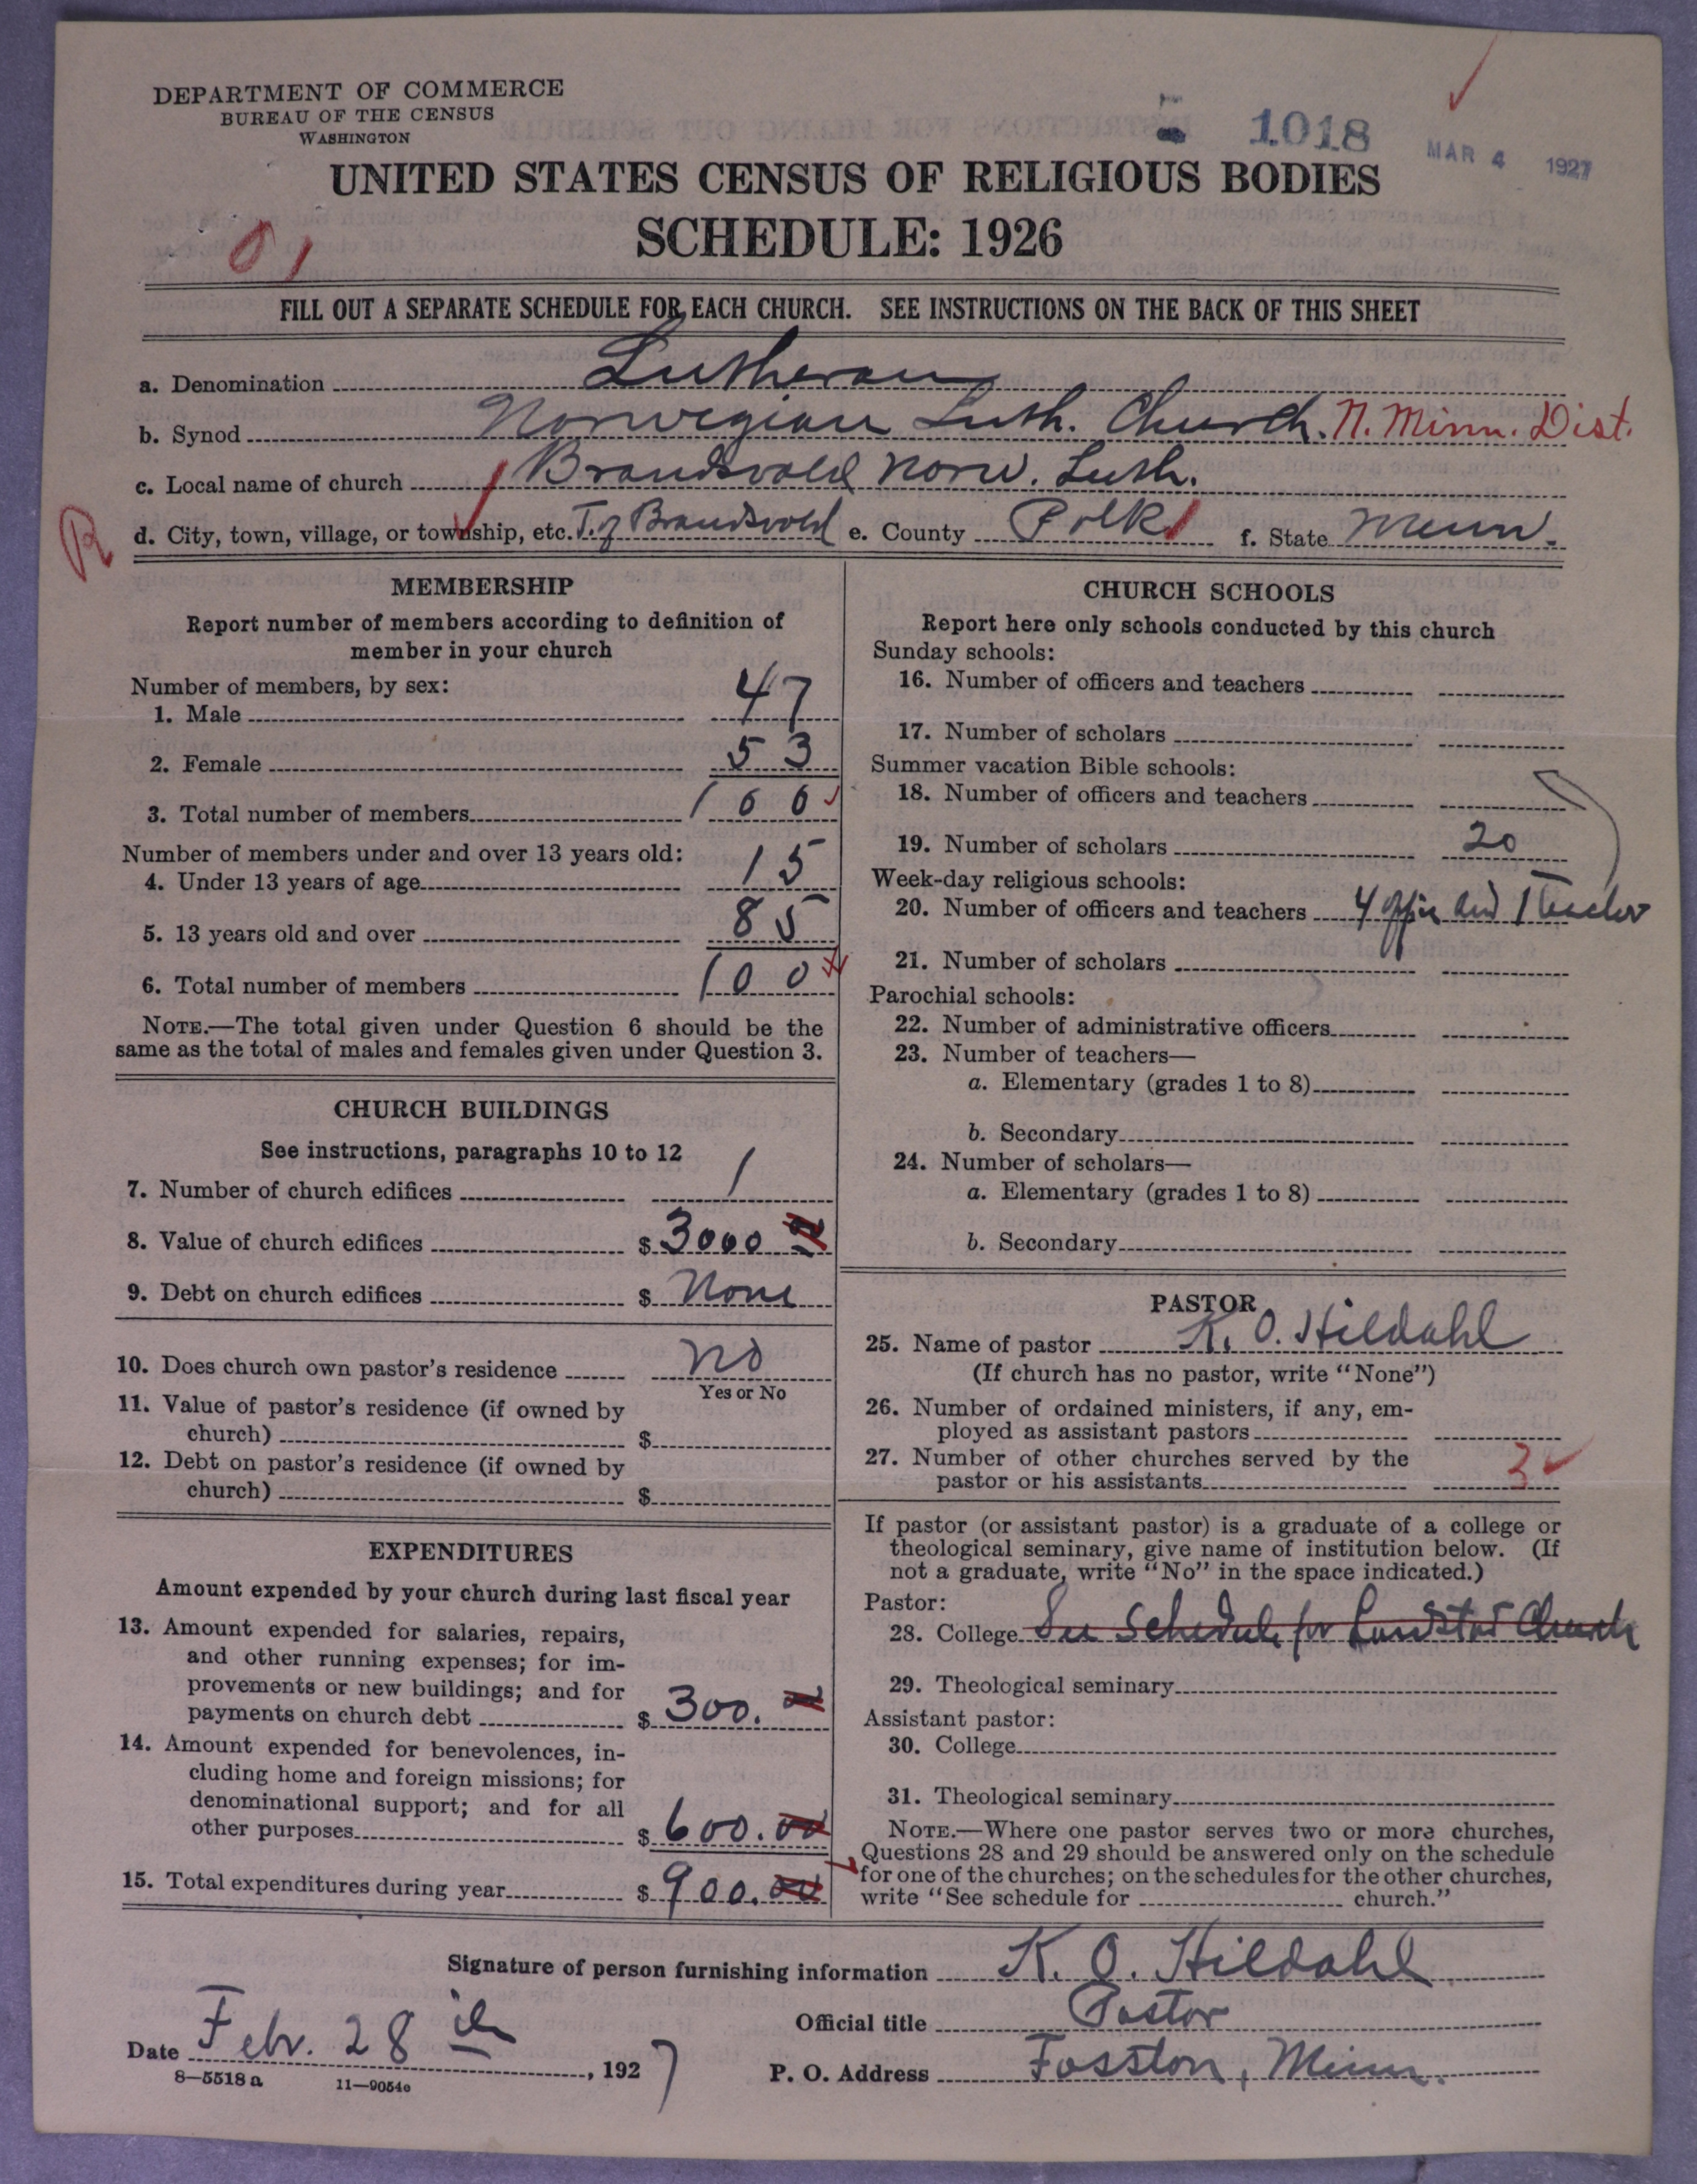 DEPARTMENT OF COMMERCE
BUREAU OF THE CENSUS
WASHINGTON
1018
MAR 4 1927
UNITED STATES CENSUS OF RELIGIOUS BODIES
SCHEDULE: 1926
01
FILL OUT A SEPARATE SCHEDULE FOR EACH CHURCH. SEE INSTRUCTIONS ON THE BACK OF THIS SHEET
a. Denomination Lutheran
b. Synod Norwegian Luth. Church. N. Minn. Dist.
c. Local name of church Brandsvold Norw. Luth.
R
d. City, town, village, or township, etc. T. of Brandsvold e. County Polk f. State Minn.
MEMBERSHIP
Report number of members according to definition of
member in your church
Number of members, by sex:
1. Male 47
2. Female 53
3. Total number of members 100
Number of members under and over 13 years old:
4. Under 13 years of age 15
5. 13 years old and over 85
6. Total number of members 100
NOTE.—The total given under Question 6 should be the
same as the total of males and females given under Question 3.
CHURCH BUILDINGS
See instructions, paragraphs 10 to 12
7. Number of church edifices 1
8. Value of church edifices $ 3000 00
9. Debt on church edifices $ None
10. Does church own pastor's residence No
Yes or No
11. Value of pastor's residence (if owned by
church) $
12. Debt on pastor's residence (if owned by
church) $
EXPENDITURES
Amount expended by your church during last fiscal year
13. Amount expended for salaries, repairs,
and other running expenses; for im-
provements or new buildings; and for
payments on church debt $ 300. 00
14. Amount expended for benevolences, in-
cluding home and foreign missions; for
denominational support; and for all
other purposes $ 600.00
15. Total expenditures during year $ 900.00
CHURCH SCHOOLS
Report here only schools conducted by this church
Sunday schools:
16. Number of officers and teachers
17. Number of scholars
Summer vacation Bible schools:
18. Number of officers and teachers
19. Number of scholars 20
Week-day religious schools:
20. Number of officers and teachers 4 and 1 Teacher
21. Number of scholars
Parochial schools:
22. Number of administrative officers
23. Number of teachers—
a. Elementary (grades 1 to 8)
b. Secondary
24. Number of scholars—
a. Elementary (grades 1 to 8)
b. Secondary
PASTOR
25. Name of pastor K. O. Hildahl
(If church has no pastor, write "None")
26. Number of ordained ministers, if any, em-
ployed as assistant pastors
27. Number of other churches served by the
pastor or his assistants 3
If pastor (or assistant pastor) is a graduate of a college or
theological seminary, give name of institution below. (If
not a graduate, write "No" in the space indicated.)
Pastor:
28. College See Schedule for Landstad Church
29. Theological seminary
Assistant pastor:
30. College
31. Theological seminary
NOTE.—Where one pastor serves two or more churches,
Questions 28 and 29 should be answered only on the schedule
for one of the churches; on the schedules for the other churches,
write "See schedule for church."
Signature of person furnishing information K. O. Hildahl
Official title Pastor
Date Febr. 28 , 1927
P. O. Address Fosston, Minn.
8—5518 a 11—9054c